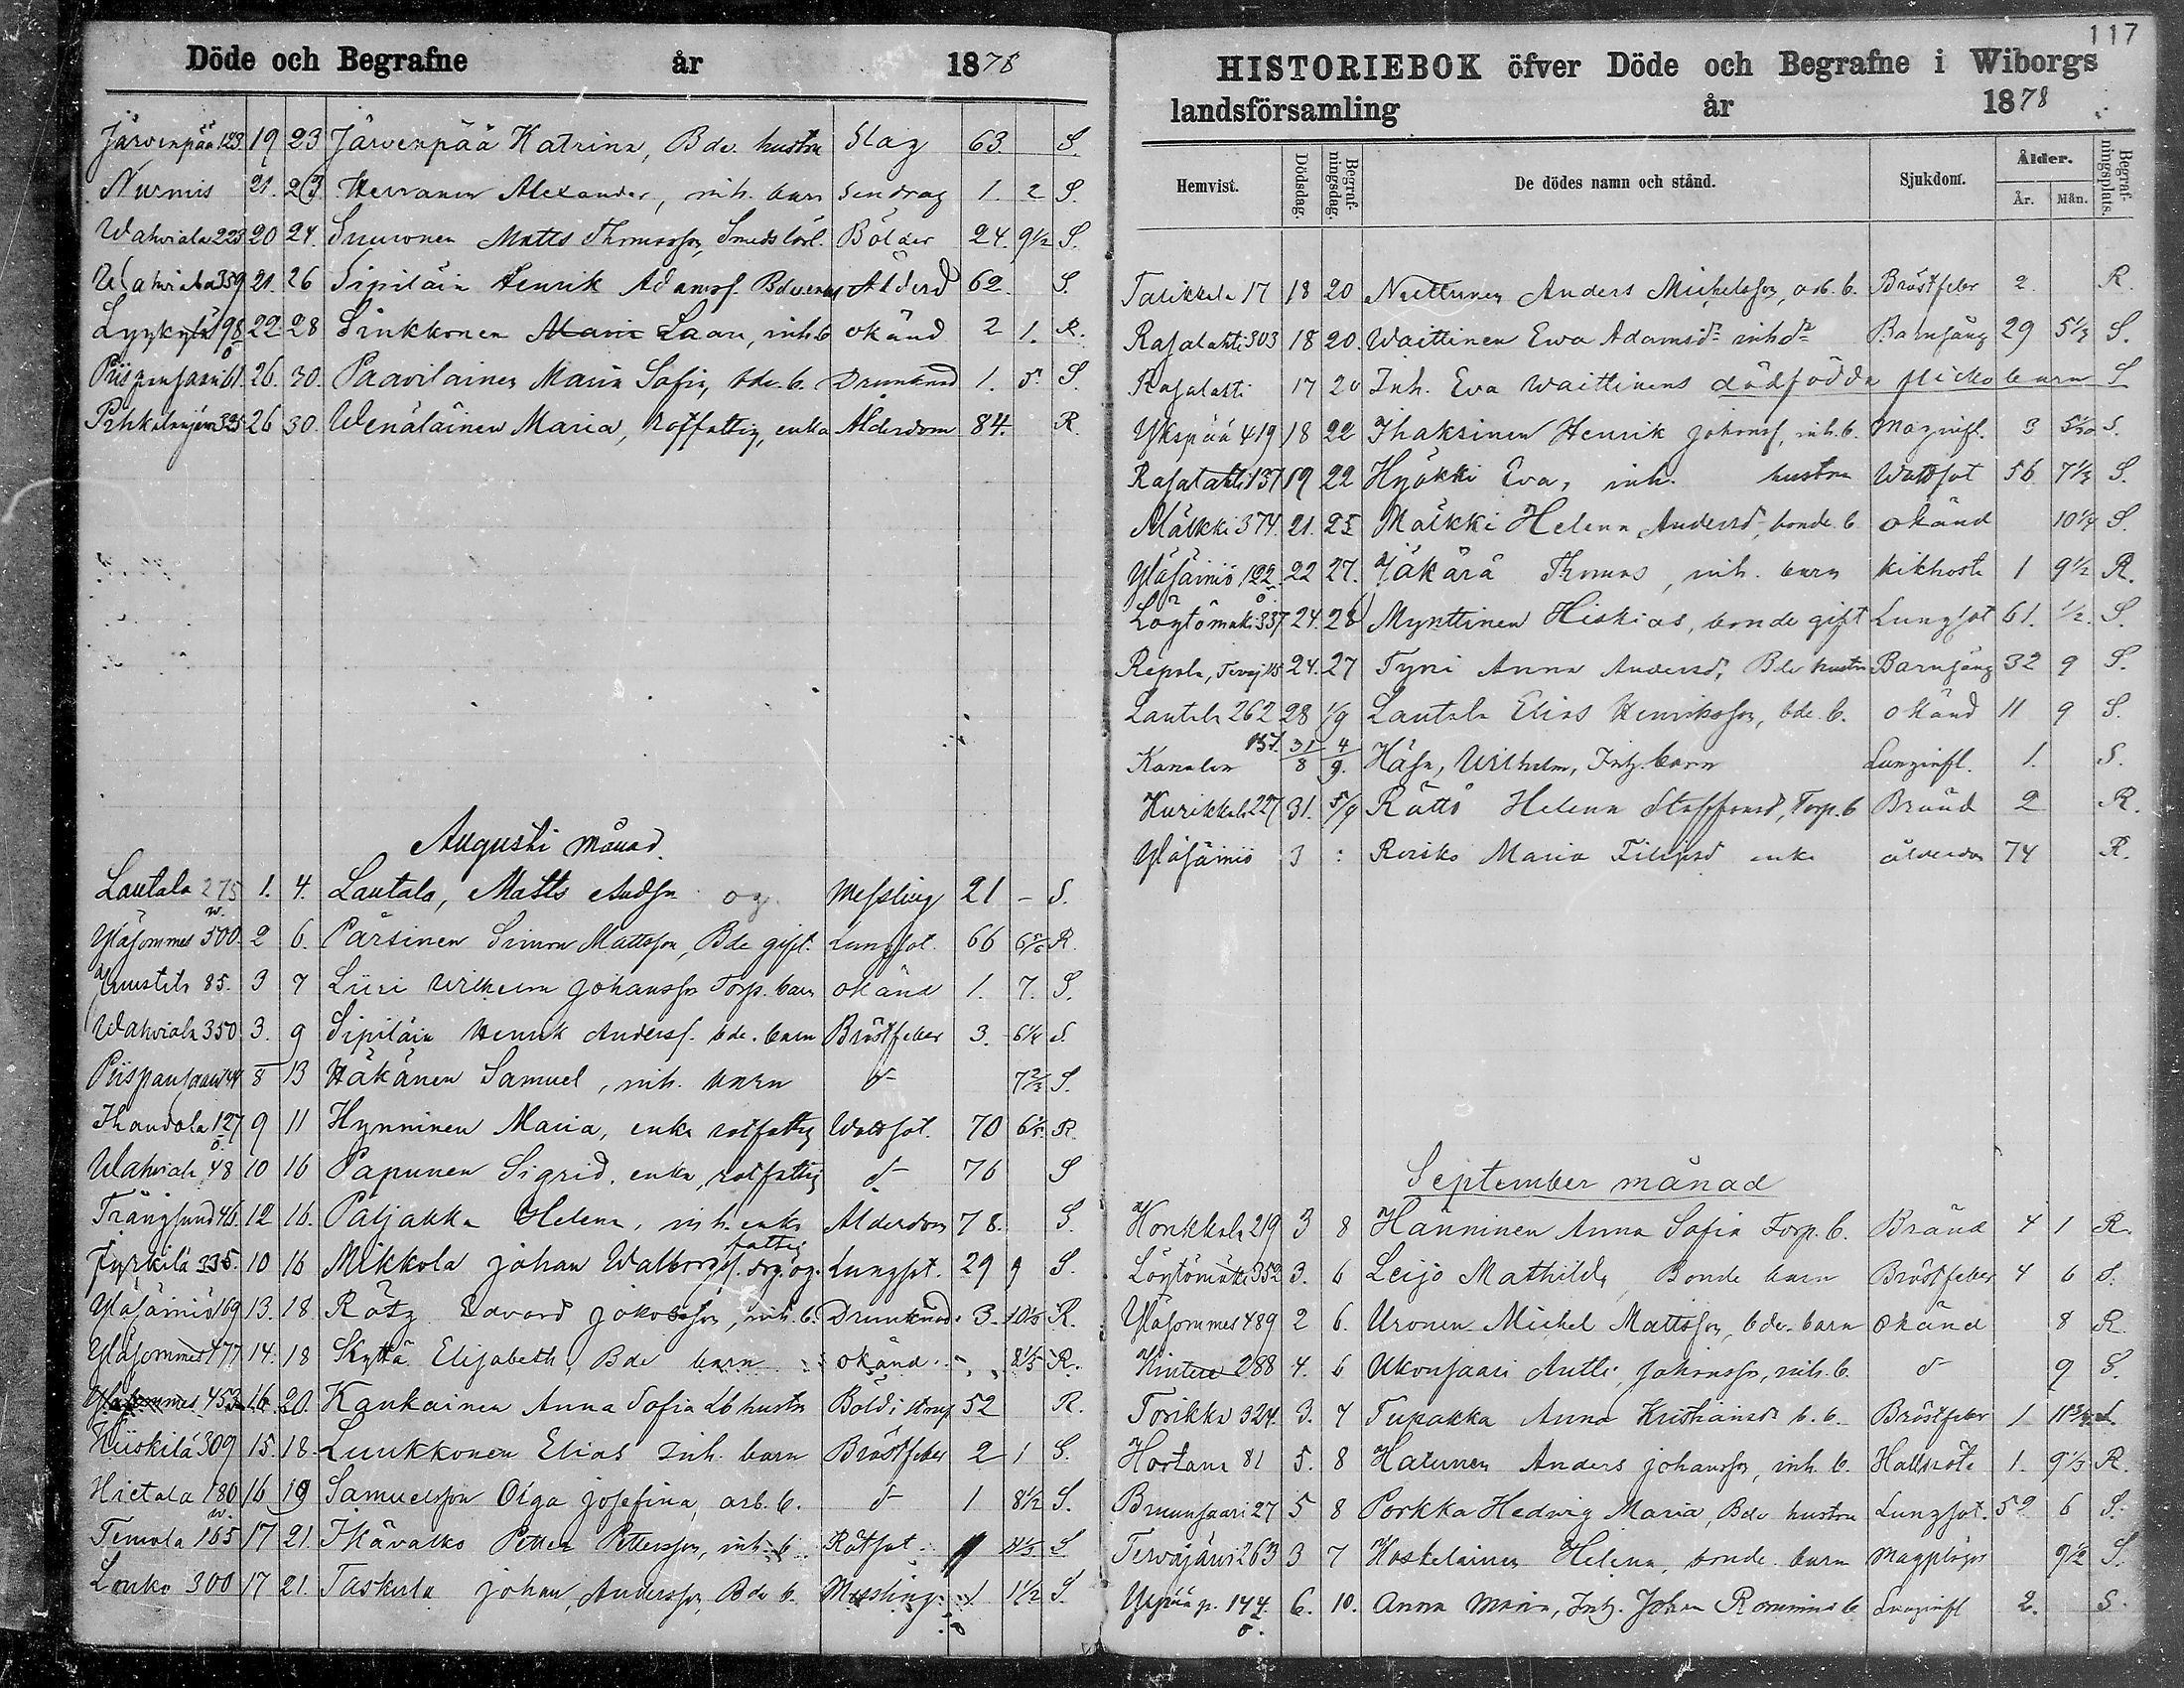 Döde och Begrafne år 1878
Järvenpää 123 19 23 Järvenpää Katrina, Bde. hustru Slag 63. S.
Nurmis 21. 23 Herranen Alexander, inh. barn Sendrag 1. 2 S.
Wahviala 223 20 24. Suuronen Matts Thomasson, Smedslärl. Bölder 24. 9 1/2 S.
Wahviala 359 21. 26 Sipiläin Henrik Adamsf. Ålderd 62. S.
Lyykylä 98 22. 28 Sinkkonen Maria Laari, inh. b okänd 2 1. R.
ö
Piispansaari 61. 26. 30. Paavilainen Maria Sofia, bde. b. Drunknad 1. 5. S.
Pihkalanjärvi 325 26 30. Wenäläinen Maria, rotfattig, enka Ålderdom 84. R.
Augusti månad.
Lautala 275 1. 4. Lautala, Matts Andsn og. Messling 21 - S.
w.
Yläsommes 500. 2 6. Pärsinen Simon Mattsson, Bde gift. Lungsot. 66 6 5/6 R.
Juustila 85. 3 7 Liiri Wilhelm Johansson Torp. barn okänd 1. 7. S.
Wahviala 350 3. 9 Sipiläin Henrik Andersf. bde. barn Bröstfeber 3. 6 1/4 S.
Piispansaari 44 8 13 Häkänen Samuel, inh. barn d 7 2/3 S.
Ihandola 127 9 11 Hynninen Maria, enka rotfattig Wattsot. 70 R.
ö.
Wahviala 48 10 16 Papunen Sigrid, enka, rotfattig d 76 S
Trångsund 46. 12 16. Paljakka Helena, inh. enka Ålderdom 78. S.
fattig
Jyrkilä 335. 10 16 Mikkola Johan Walborgsf. og. Lungsot. 29 9 S.
Yläsäiniö 169 13. 18. Rötz Edvard Jakobsson, inh. b. Drunknad. 3. 10 1/3 R.
Yläsommes 477 14. 18 Skyttä Elisabeth, Bde barn okänd 2 1/3 R.
Yläsommes 453 16. 20. Kankainen Anna Sofia Lb hustru Böld i strup 52 R.
Kiiskilä 309 15. 18. Luukkonen Elias inh. barn Bröstfeber 2 1 S.
Hietala 180 16 19 Samuelsson Olga Josefina, arb. b. d 1 8 1/2 S.
w.
Temola 165 17 21. Ihävalko Petter Pettersson, inh. b. Rötsot 1 S
Louko 300 17 21. Taskula Johan, Andersson, Bde b. Messling 1 1 1/2 S.
117
HISTORIEBOK öfver Döde och Begrafne i Wiborgs
landsförsamling år 1878
Hemvist. Dödsdag. Begrafningsdag. De dödes namn och stånd. Sjukdom. Ålder. År. Mån. Begrafningsplats.
Talikkala 17 18 20 Nuttunen Anders Michelsson, arb. b. Bröstfeber 2. R.
Rasalahti 303 18 20. Waittinen Ewa Adamsd: inhd: Barnsäng 29 5 1/3 S.
Rasalahti 17 20 Inh. Eva Waittinens dödfödda flicko barn S
Ykspää 419 18 22 Ihaksinen Henrik Johansf, inh. b. Maginfl. 3 S.
Rasalahti 137 19 22 Hyökki Eva, inh. hustru Wattsot 56 7 1/3 S.
Mälkki 374. 21. 25 Mälkki Helena Andersd, bonde. b okänd 10 1/4 S.
Yläsäiniö 122. 22 27. Jäkärä Thomas, inh. barn kikhosta 1 9 1/2 R.
ö.
Löytömäki 337 24. 28 Mynttinen Hiskias, bonde gift Lungsot 61. 1/2. S.
Repola, Tervaj 115 24. 27 Tyni Anna Andersd, Bde hustru Barnsäng 32 9 S.
Lautala 262 28 1/9 Lautala Elias Henriksson, bde. b. okänd 11 9 S.
Kanalen 157. 31/8 4/9. Häsä, Wilhelm, Inh. barn Lunginfl. 1. S.
Kurikkala 227 31. 5/9 Rättö Helena Staffansd, Torp. b Bränd 2 R.
Yläsäiniö 3 : Roisko Maria Filipsd enka ålderdom 74 R.
September månad
Konkkala 219 3 8 Hänninen Anna Sofia Torp. b. Bränd 4 1 R.
Löytömäki 352 3. 6 Leijo Mathilda, Bonde barn Bröstfeber 4 6 S.
Yläsommes 489 2 6. Uronen Michel Mattsson, bde. barn okänd 8 R.
Kintere 288 4. 6 Ukonsaari Antti Johansson, inh. b. d 9 S.
Torikka 324. 3. 7 Tupakka Anna Kristiansd b. b. Bröstfeber 1 11 3/4 S.
Hortana 81 5. 8 Hatunen Anders Johansson, inh. b. Halsröta 1. 9 1/3 R.
Bruunsaari 27 5 8 Porkka Hedvig Maria, Bde hustru Lungsot. 52 6 S.
Tervajärvi 263 3 7 Koskelainen Helena, bonde. barn Magplågor 9 1/2 S.
Yxpää p. 144. 6. 10. Anna Maria, Inh. Johan Rommius b Lunginfl 2. S.
ö.